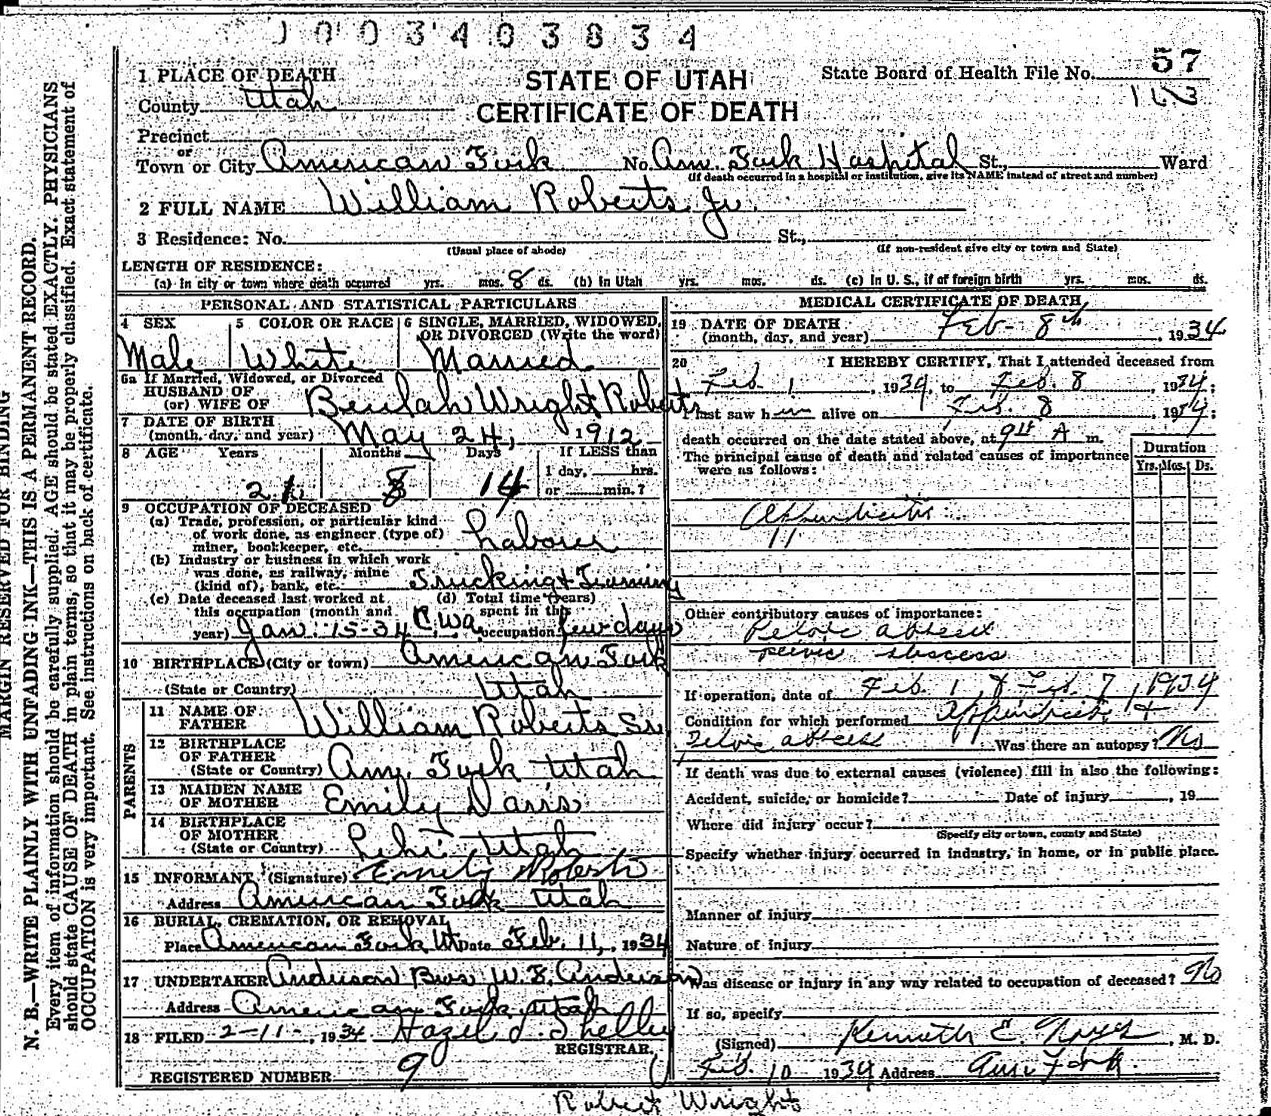 1003403834
STATE OF UTAH
CERTIFICATE OF DEATH
State Board of Health File No. 57
1 PLACE OF DEATH
County Utah
Precinct
or
Town or City American Fork No. Am. Fork Hospital St., Ward
(If death occurred in a hospital or institution, give its NAME instead of street and number)
2 FULL NAME William Roberts Jr.
3 Residence: No. St.,
(Usual place of abode) (If non-resident give city or town and State)
LENGTH OF RESIDENCE:
(a) In city or town where death occurred yrs. mos. 8 ds. (b) In Utah yrs. mos. ds. (c) In U. S., if of foreign birth yrs. mos. ds.
PERSONAL AND STATISTICAL PARTICULARS
4 SEX 5 COLOR OR RACE 6 SINGLE, MARRIED, WIDOWED,
OR DIVORCED (Write the word)
Male White Married
6a If Married, Widowed, or Divorced
HUSBAND OF
(or) WIFE OF Beulah Wright Roberts
7 DATE OF BIRTH
(month, day, and year) May 24, 1912
8 AGE Years Months Days If LESS than
1 day, hrs.
21 8 14 or min.?
9 OCCUPATION OF DECEASED
(a) Trade, profession, or particular kind
of work done, as engineer (type of)
miner, bookkeeper, etc. Laborer
(b) Industry or business in which work
was done, as railway, mine
(kind of), bank, etc. Trucking &
(c) Date deceased last worked at (d) Total time (years)
this occupation (month and spent in this
year) Jan. 15-34 C.W.A. occupation few days
10 BIRTHPLACE (City or town) American Fork
(State or Country) Utah
PARENTS
11 NAME OF
FATHER William Roberts Sr
12 BIRTHPLACE
OF FATHER
(State or Country) Am. Fork Utah
13 MAIDEN NAME
OF MOTHER Emily Davis
14 BIRTHPLACE
OF MOTHER
(State or Country) Lehi Utah
15 INFORMANT (Signature) Emily Roberts
Address American Fork Utah
16 BURIAL, CREMATION, OR REMOVAL
Place American Fork Ut Date Feb. 11, 1934
17 UNDERTAKER Anderson Bros W. E. Anderson
Address American Fork, Utah
18 FILED 2-11-, 1934 Hazel J. Shelley
REGISTRAR.
REGISTERED NUMBER 9
MEDICAL CERTIFICATE OF DEATH
19 DATE OF DEATH
(month, day, and year) Feb- 8th, 1934
20 I HEREBY CERTIFY, That I attended deceased from
Feb. 1, 1934, to Feb. 8, 1934;
I last saw him alive on Feb. 8, 1934;
death occurred on the date stated above, at A m.
The principal cause of death and related causes of importance
were as follows:
Duration
Yrs. Mos. Ds.
Appendicitis
11
Other contributory causes of importance:
Pelvic abscess
pelvic abscess
If operation, date of Feb. 1, & Feb. 7, 1934
Condition for which performed Appendicitis +
Pelvic abscess Was there an autopsy? No
If death was due to external causes (violence) fill in also the following:
Accident, suicide, or homicide? Date of injury, 19
Where did injury occur?
(Specify city or town, county and State)
Specify whether injury occurred in industry, in home, or in public place.
Manner of injury
Nature of injury
Was disease or injury in any way related to occupation of deceased? No
If so, specify
(Signed) Kenneth E. Noyes, M. D.
Feb. 10 1934 Address Am. Fork.
Robert Wright
MARGIN RESERVED FOR BINDING
N. B.—WRITE PLAINLY WITH UNFADING INK—THIS IS A PERMANENT RECORD.
Every item of information should be carefully supplied. AGE should be stated EXACTLY. PHYSICIANS
should state CAUSE OF DEATH in plain terms, so that it may be properly classified. Exact statement of
OCCUPATION is very important. See instructions on back of certificate.